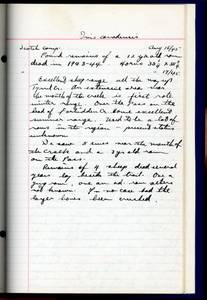 Ovis canadensis
Aug 16/45
Found remains of a 12 yr old ram
died in 1943-44. Horns 38½ 38½
17/45
Excellent sheep range all the way up
Creek. An extensive area near
the mouth of the creek is first rate
winter range. Over the Pass on the
head of Creek some excellent
summer range. Used to be a lot of
rams in the region - present status
unknown
We saw 5 ewes near the mouth of
the Creek and a 3 yr old ram
on the Pass.
Remains of 4 sheep dead several
years lay beside the trail. One a
ram, one an ad. ram others
not known. In no case had the
larger bones been crushed.